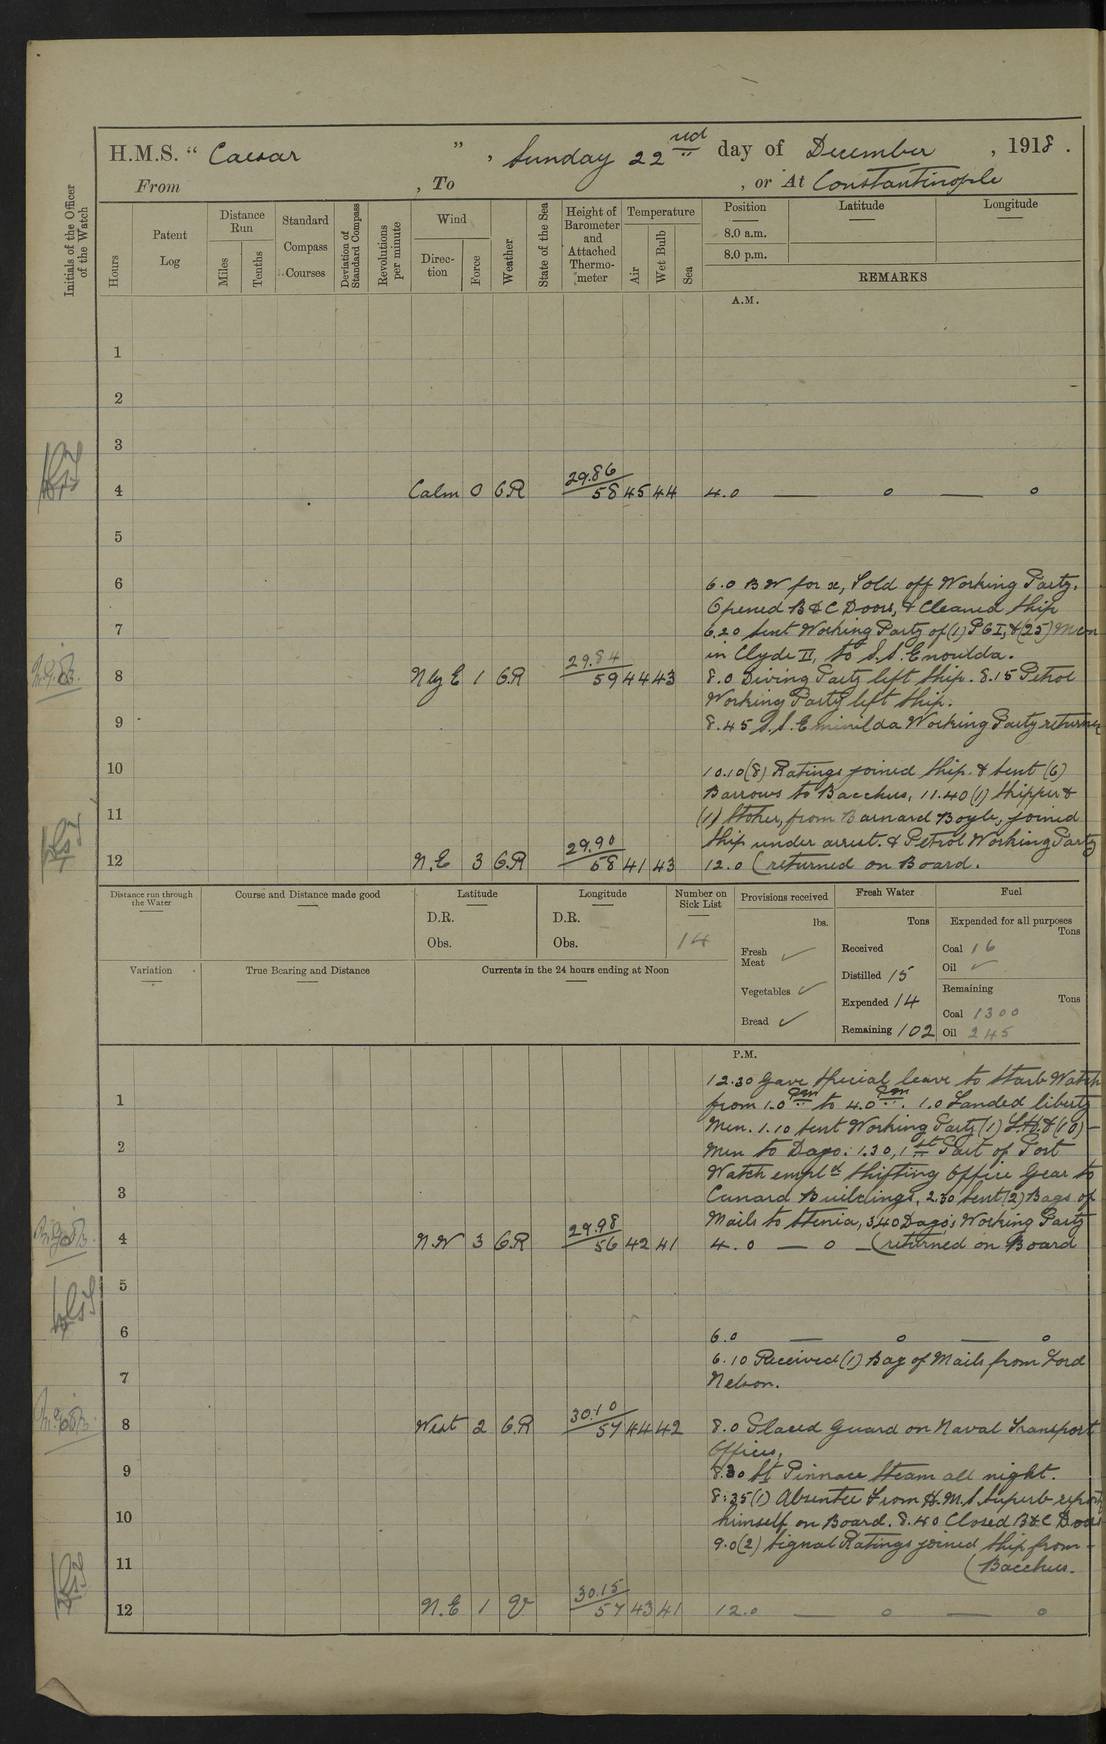 H.M.S. " Caesar ", Sunday 22nd day of December, 1918.
From , To , or At Constantinople
Initials of the Officer of the Watch
Hours
Patent Log
Distance Run
Miles
Tenths
Standard Compass Courses
Deviation of Standard Compass
Revolutions per minute
Wind
Direction
Force
Weather
State of the Sea
Height of Barometer and Attached Thermometer
Temperature
Air
Wet Bulb
Sea
Position
Latitude
Longitude
8.0 a.m.
8.0 p.m.
REMARKS
A.M.
1
2
3
4 Calm 0 O.R 29.86 58 45 44 4.0 — o — o
5
6 6.0 B W for x, Told off Working Party.
Opened B & C Doors, & Cleaned Ship
7 6.20 Sent Working Party of (1) PO I, & (25) Men
in Clyde II, to S.S.
8 N by E 1 O.R 29.84 59 44 43 8.0 Diving Party left ship. 8.15 Petrol
Working Party left ship.
9 8.45 S.S. Working Party returned
10 10.10 (8) Ratings joined ship. & sent (6)
Barrows to Bacchus, 11.40 (1) Skipper &
11 (1) Stoker, from Barnard Boyle, joined
ship under arrest. & Petrol Working Party
12 N.E 3 O.R 29.90 58 41 43 12.0 (returned on Board.
Distance run through the Water
Course and Distance made good
Latitude
D.R.
Obs.
Longitude
D.R.
Obs.
Number on Sick List
14
Provisions received
lbs.
Fresh Meat ✓
Vegetables ✓
Bread ✓
Fresh Water
Tons
Received
Distilled 15
Expended 14
Remaining 102
Fuel
Expended for all purposes
Tons
Coal 16
Oil ✓
Remaining
Tons
Coal 1300
Oil 245
Variation
True Bearing and Distance
Currents in the 24 hours ending at Noon
P.M.
12.30 Gave special leave to Starb Watch
1 from 1.0 pm to 4.0 pm. 1.0 Landed liberty
Men. 1.10 Sent Working Party (1) & (10) -
2 Men to Dago. 1.30, 1st Part of Port
Watch empld shifting Office Gear to
3 Cunard Buildings, 2.30 sent (2) Bags of
Mails to Stenia, 3.40 Dago's Working Party
4 N.W 3 O.R 29.98 56 42 41 4.0 — o — (returned on Board
5
6 6.0 — o — o
6.10 Received (1) Bag of Mails from Lord
7 Nelson.
8 West 2 O.R 30.10 57 44 42 8.0 Placed Guard on Naval Transport
Offices,
9 8.30 St Pinnace Steam all night.
8.35 (1) Absentee from H.M.S. Superb
10 himself on Board. 8.40 Closed B & C Doors
9.0 (2) Signal Ratings joined ship from -
11 (Bacchus.
12 N.E 1 30.15 57 43 41 12.0 — o — o